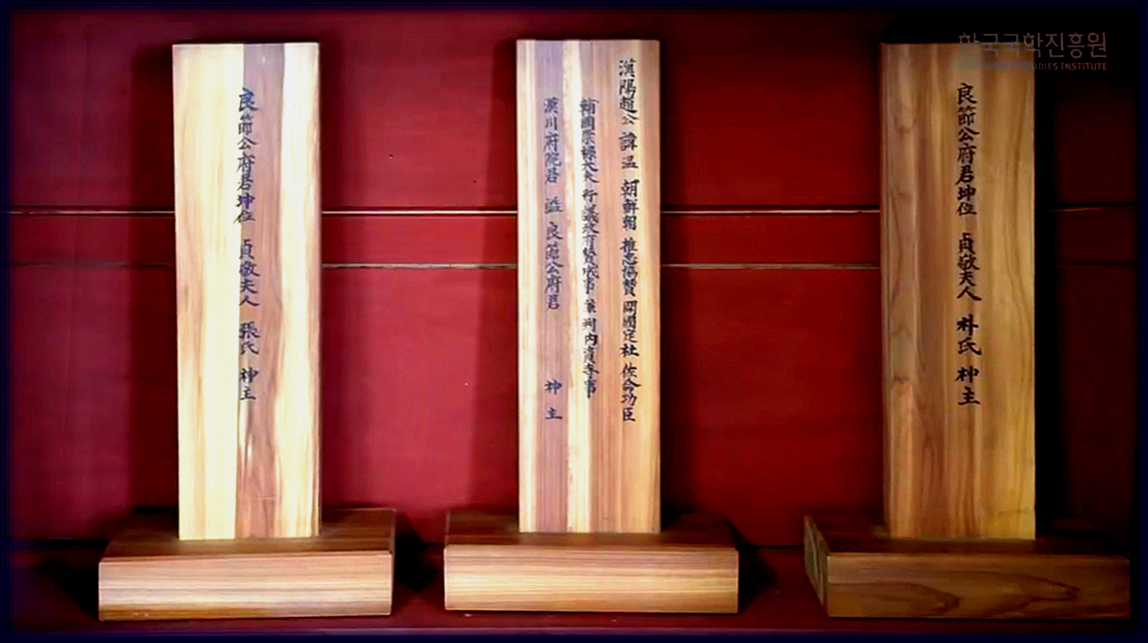 良節公府君坤位 貞敬夫人 張氏 神主
漢陽趙公 諱温 朝鮮朝 推忠協贊 開國定社 佐命功臣
輔國崇祿大夫 行議政府贊成事 兼判內資寺事
漢川府院君 謚 良節公府君 神主
良節公府君坤位 貞敬夫人 朴氏 神主
한국국학진흥원
STUDIES INSTITUTE